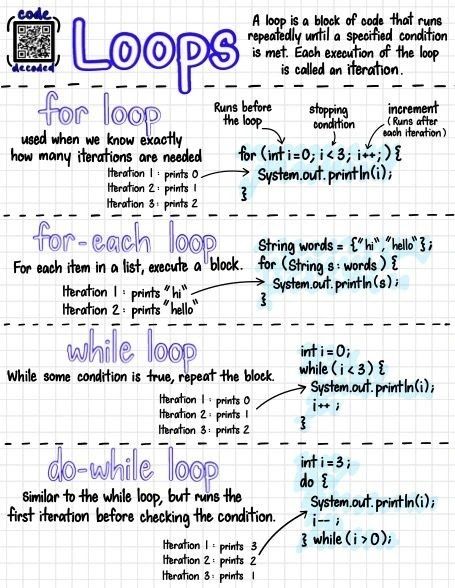 code
decoded
Loops
A loop is a block of code that runs
repeatedly until a specified condition
is met. Each execution of the loop
is called an iteration.
for loop
used when we know exactly
how many iterations are needed
Iteration 1 : prints 0
Iteration 2 : prints 1
Iteration 3 : prints 2
Runs before
the loop
stopping
condition
increment
(Runs after
each iteration)
for (int i=0; i<3; i++;) {
System.out.println(i);
}
for-each loop
For each item in a list, execute a block.
Iteration 1 : prints "hi"
Iteration 2 : prints "hello"
String words = {"hi","hello"};
for (String s : words) {
System.out.println(s);
}
while loop
While some condition is true, repeat the block.
Iteration 1 : prints 0
Iteration 2 : prints 1
Iteration 3 : prints 2
int i=0;
while (i<3) {
System.out.println(i);
i++;
}
do-while loop
Similar to the while loop, but runs the
first iteration before checking the condition.
Iteration 1 : prints 3
Iteration 2 : prints 2
Iteration 3 : prints 1
int i=3;
do {
System.out.println(i);
i--;
} while (i>0);